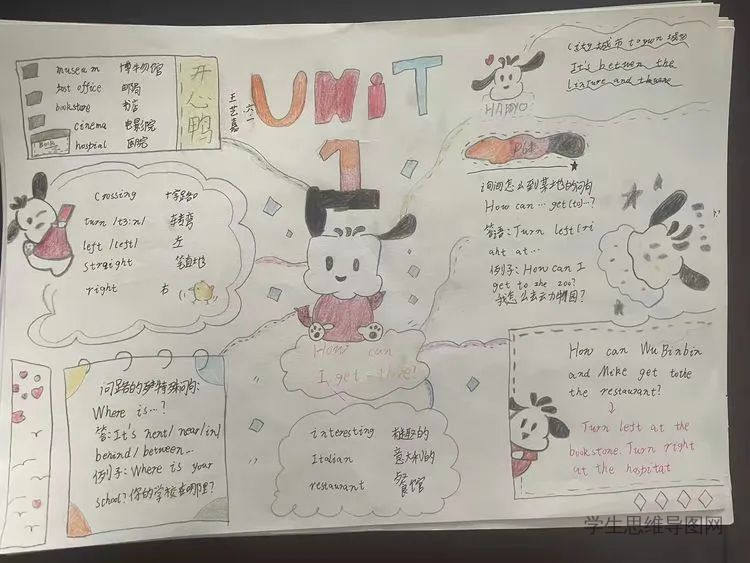 museum 博物馆
post office 邮局
bookstore 书店
cinema 电影院
hospial 医院
开心鸭
UNiT
1
六一
王艺嘉
HAPPYO
City 城市 town 城镇
It's between the
and
Crossing 十字路口
turn /tɜ:n/ 转弯
left /left/ 左
Straight 笔直地
right 右
询问怎么到某地的问句
How can … get (to)…?
答语: Turn left (ri
ght at …
例子: How can I
get to the zoo?
我怎么去动物园?
How can
I get there!
问路的特殊问句:
Where is …?
答: It's next/ near/in/
behind/ between…
例子: Where is your
school? 你的学校在哪里?
interesting 有趣的
Italian 意大利的
restaurant 餐馆
How can Wu Binbin
and Mike get to the
the restaurant?
↓
Turn left at the
bookstone. Turn right
at the hospitat
学生思维导图网